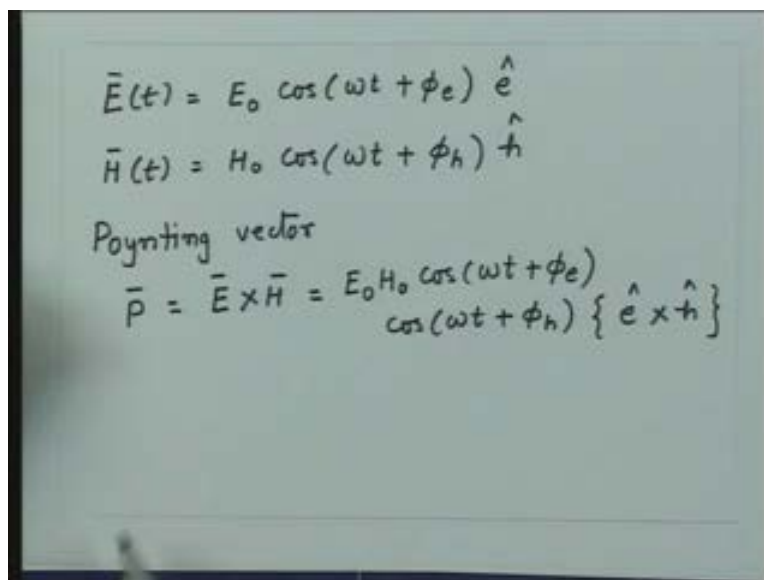 Ē(t) = E₀ cos(ωt + ϕₑ) ê
H̄(t) = H₀ cos(ωt + ϕₕ) ĥ
Poynting vector
P̄ = Ē × H̄ = E₀H₀ cos(ωt + ϕₑ)
cos(ωt + ϕₕ) { ê × ĥ }